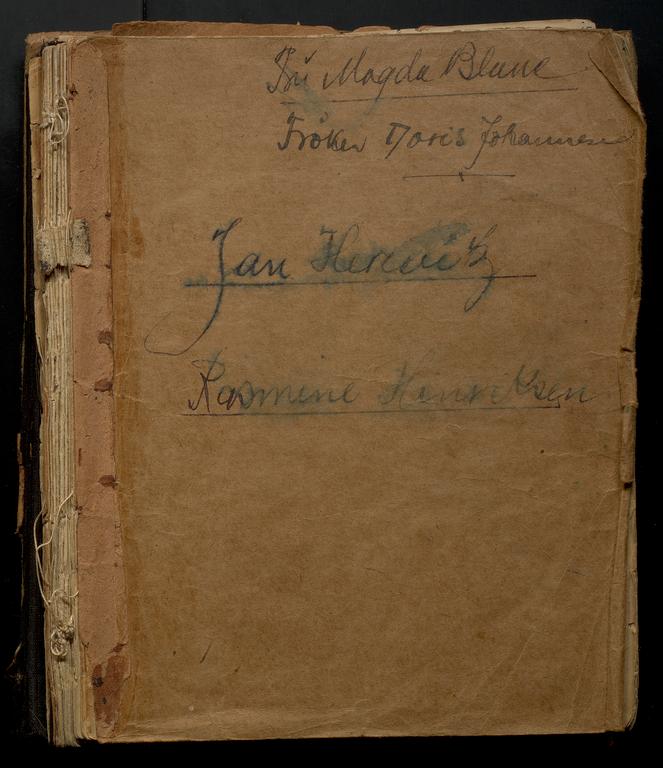 Fru Magda Blanc
Frøken Doris Johannesen
Jan Herwitz
Rasmine Henriksen